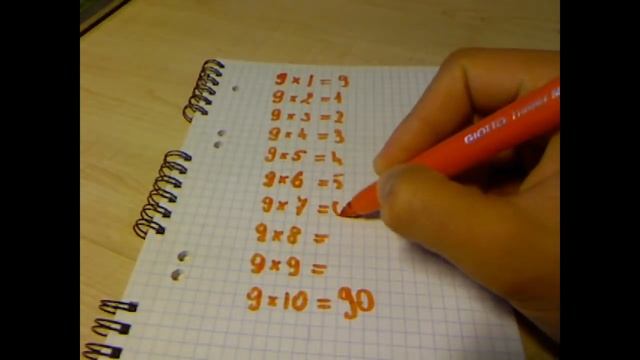 9 × 1 = 9
9 × 2 = 1
9 × 3 = 2
9 × 4 = 3
9 × 5 = 4
9 × 6 = 5
9 × 7 =
9 × 8 =
9 × 9 =
9 × 10 = 90
GIOTTO